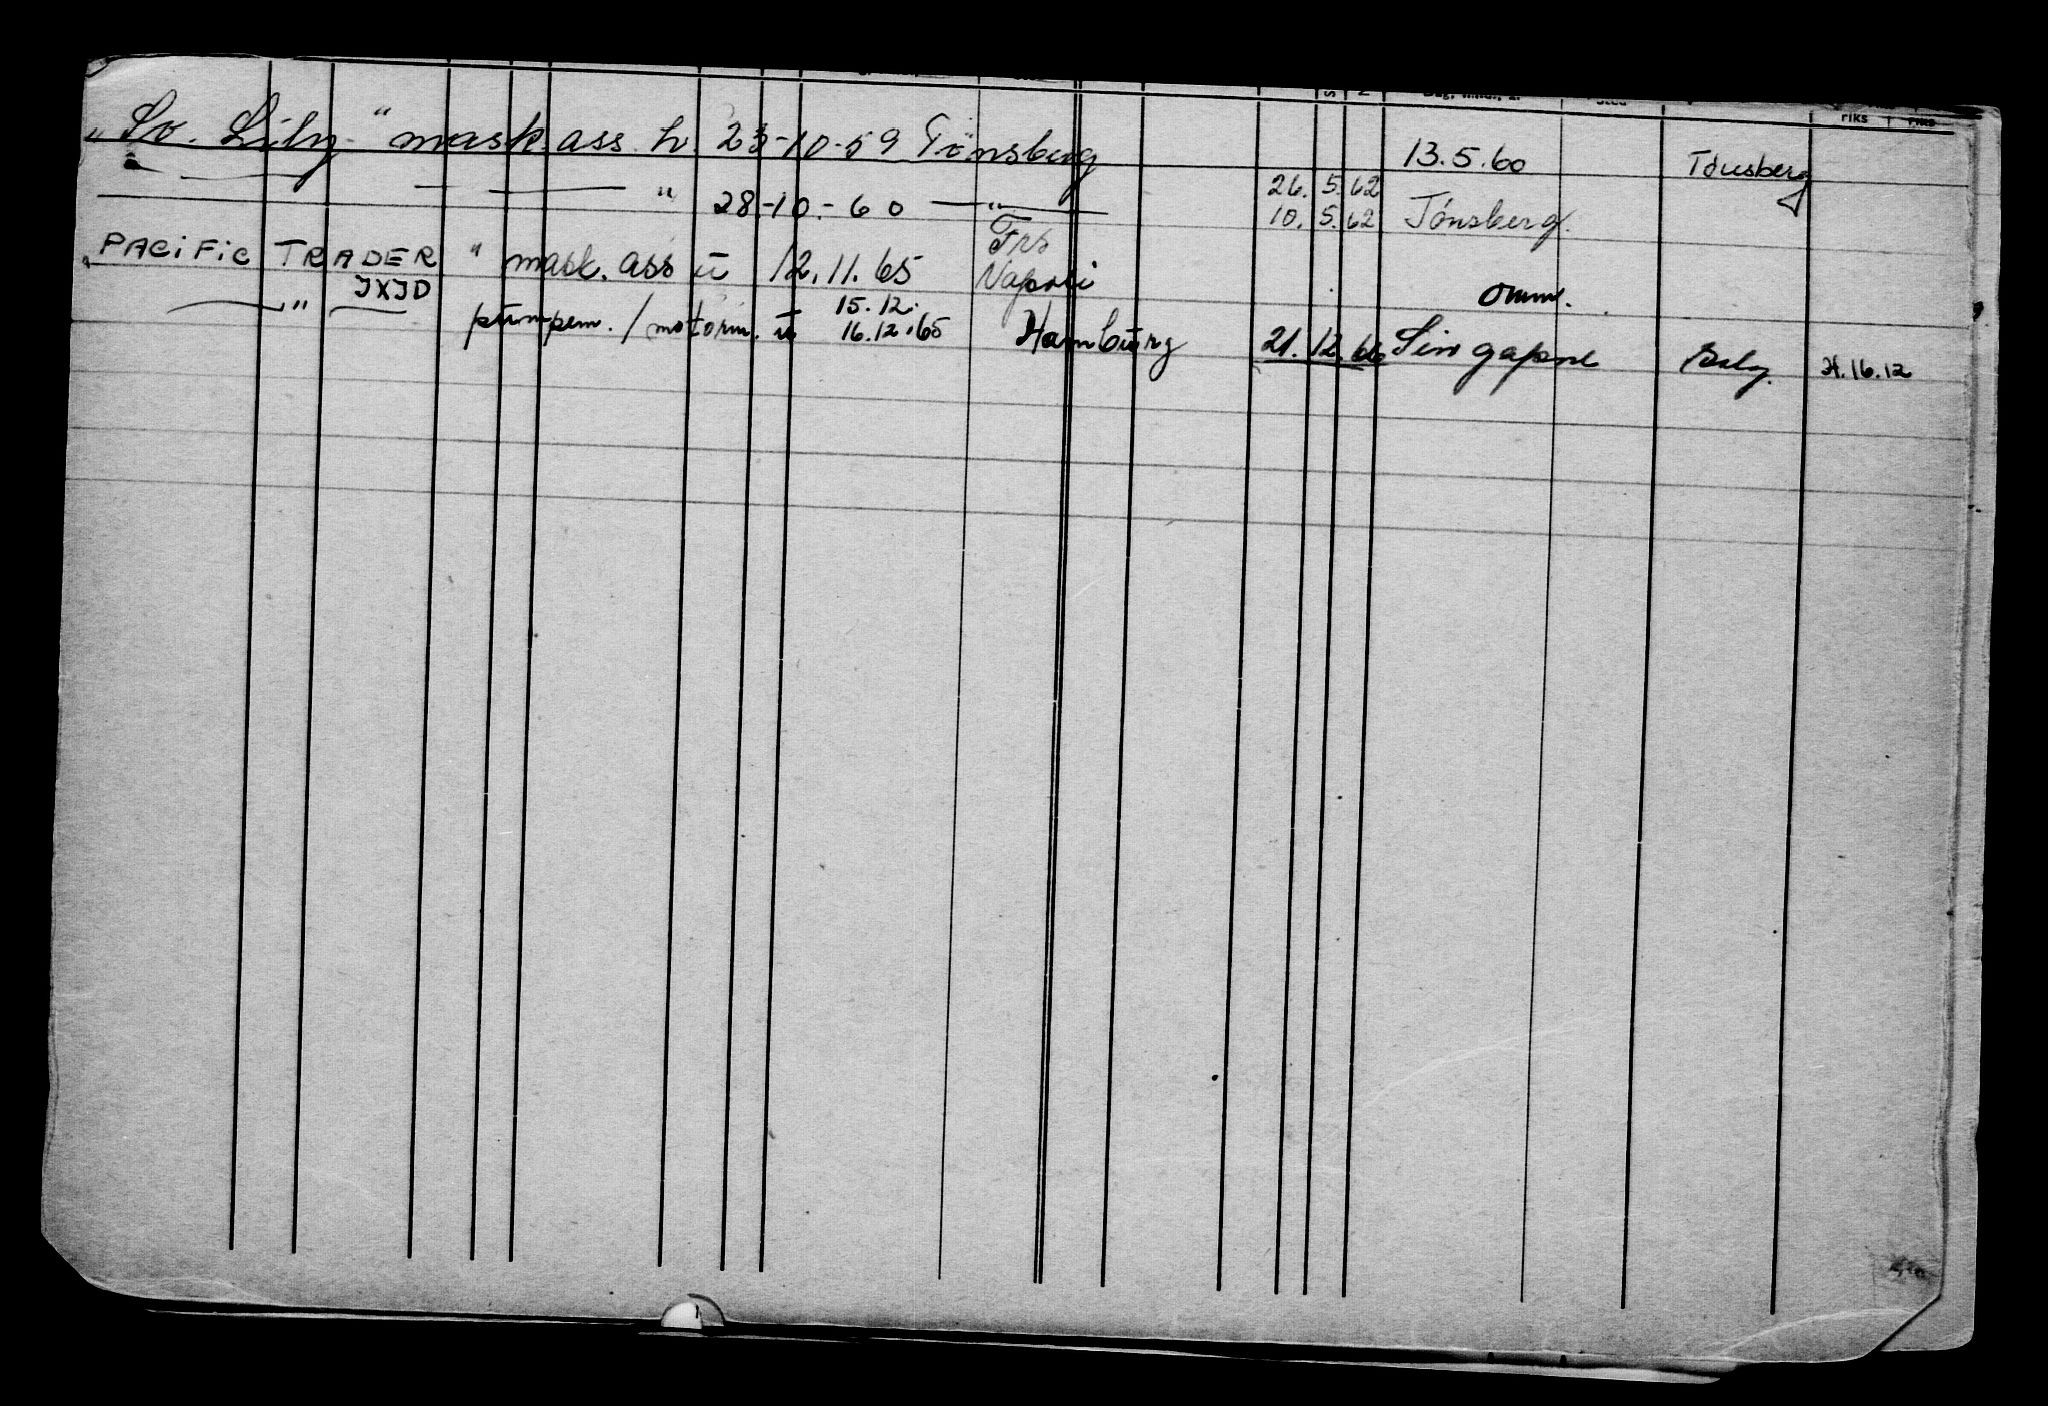 riks riks
„ Sv. Lily " mask. ass. h 23-10-59 Tönsberg 13.5.60 Tönsberg
" 28.-10.-60 — " — 26. 5. 62
10. 5. 62 Tönsberg.
„ PACiFiC TRADER " mask. ass ŭ 12.11.65 Napoli
JXJD Omm.
— " — pŭmpem. / motorm. ŭ 15.12.
16.12.65 Hambŭrg 21. 12. 66 Singapore 21.16.12